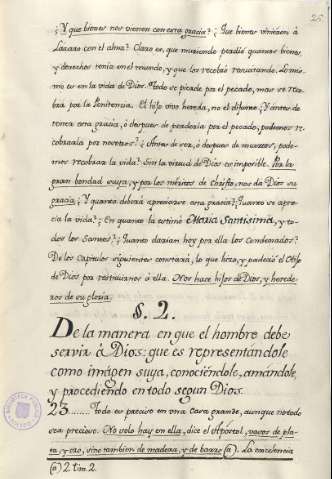 25
¿Y que bienes nos vienen con esta gracia? ¿Que bienes vinieron á
Lazaro con el alma? Claro es, que muriendo perdió quantos bienes,
y derechos tenia en el mundo, y que los recobró resucitando. Lo mis-
mo es en la vida de Dios. Todo se pierde por el pecado, mas se reco-
bra por la Penitencia. El hijo vivo hereda, no el difunto. ¿Y antes de
tener esta gracia, ó despues de perderla por el pecado, podemos re-
cobrarla por nosotros? ¿Antes de ser, ó despues de muertos, pode-
mos recobrar la vida? Sin la virtud de Dios es imposible. Por la
gran bondad suya, y por los méritos de Christo, nos dá Dios su
gracia. ¿Y quanto deberá apreciarse esta gracia? ¿Quanto se apre-
cia la vida? ¿En quanto la estimó Maria Santisima, y to-
dos los Santos? ¿Quanto darian hoy por ella los Condenados?
De los Capitulos siguientes constará, lo que hizo, y padeció el Hijo
de Dios por restituirnos á ella. Nos hace hijos de Dios, y herede-
ros de su gloria.
§. 2.
De la manera en que el hombre debe
servir á Dios: que es representandole
como imágen suya, conociéndole, amándole,
y procediendo en todo segun Dios.
23...... Todo es preciso en una Casa grande, aunque no todo
sea precioso. No solo hay en ella, dice el Apóstol, vasos de pla-
ta, y oro, sino tambien de madera, y de barro (a). La
(a) 2 tim 2.